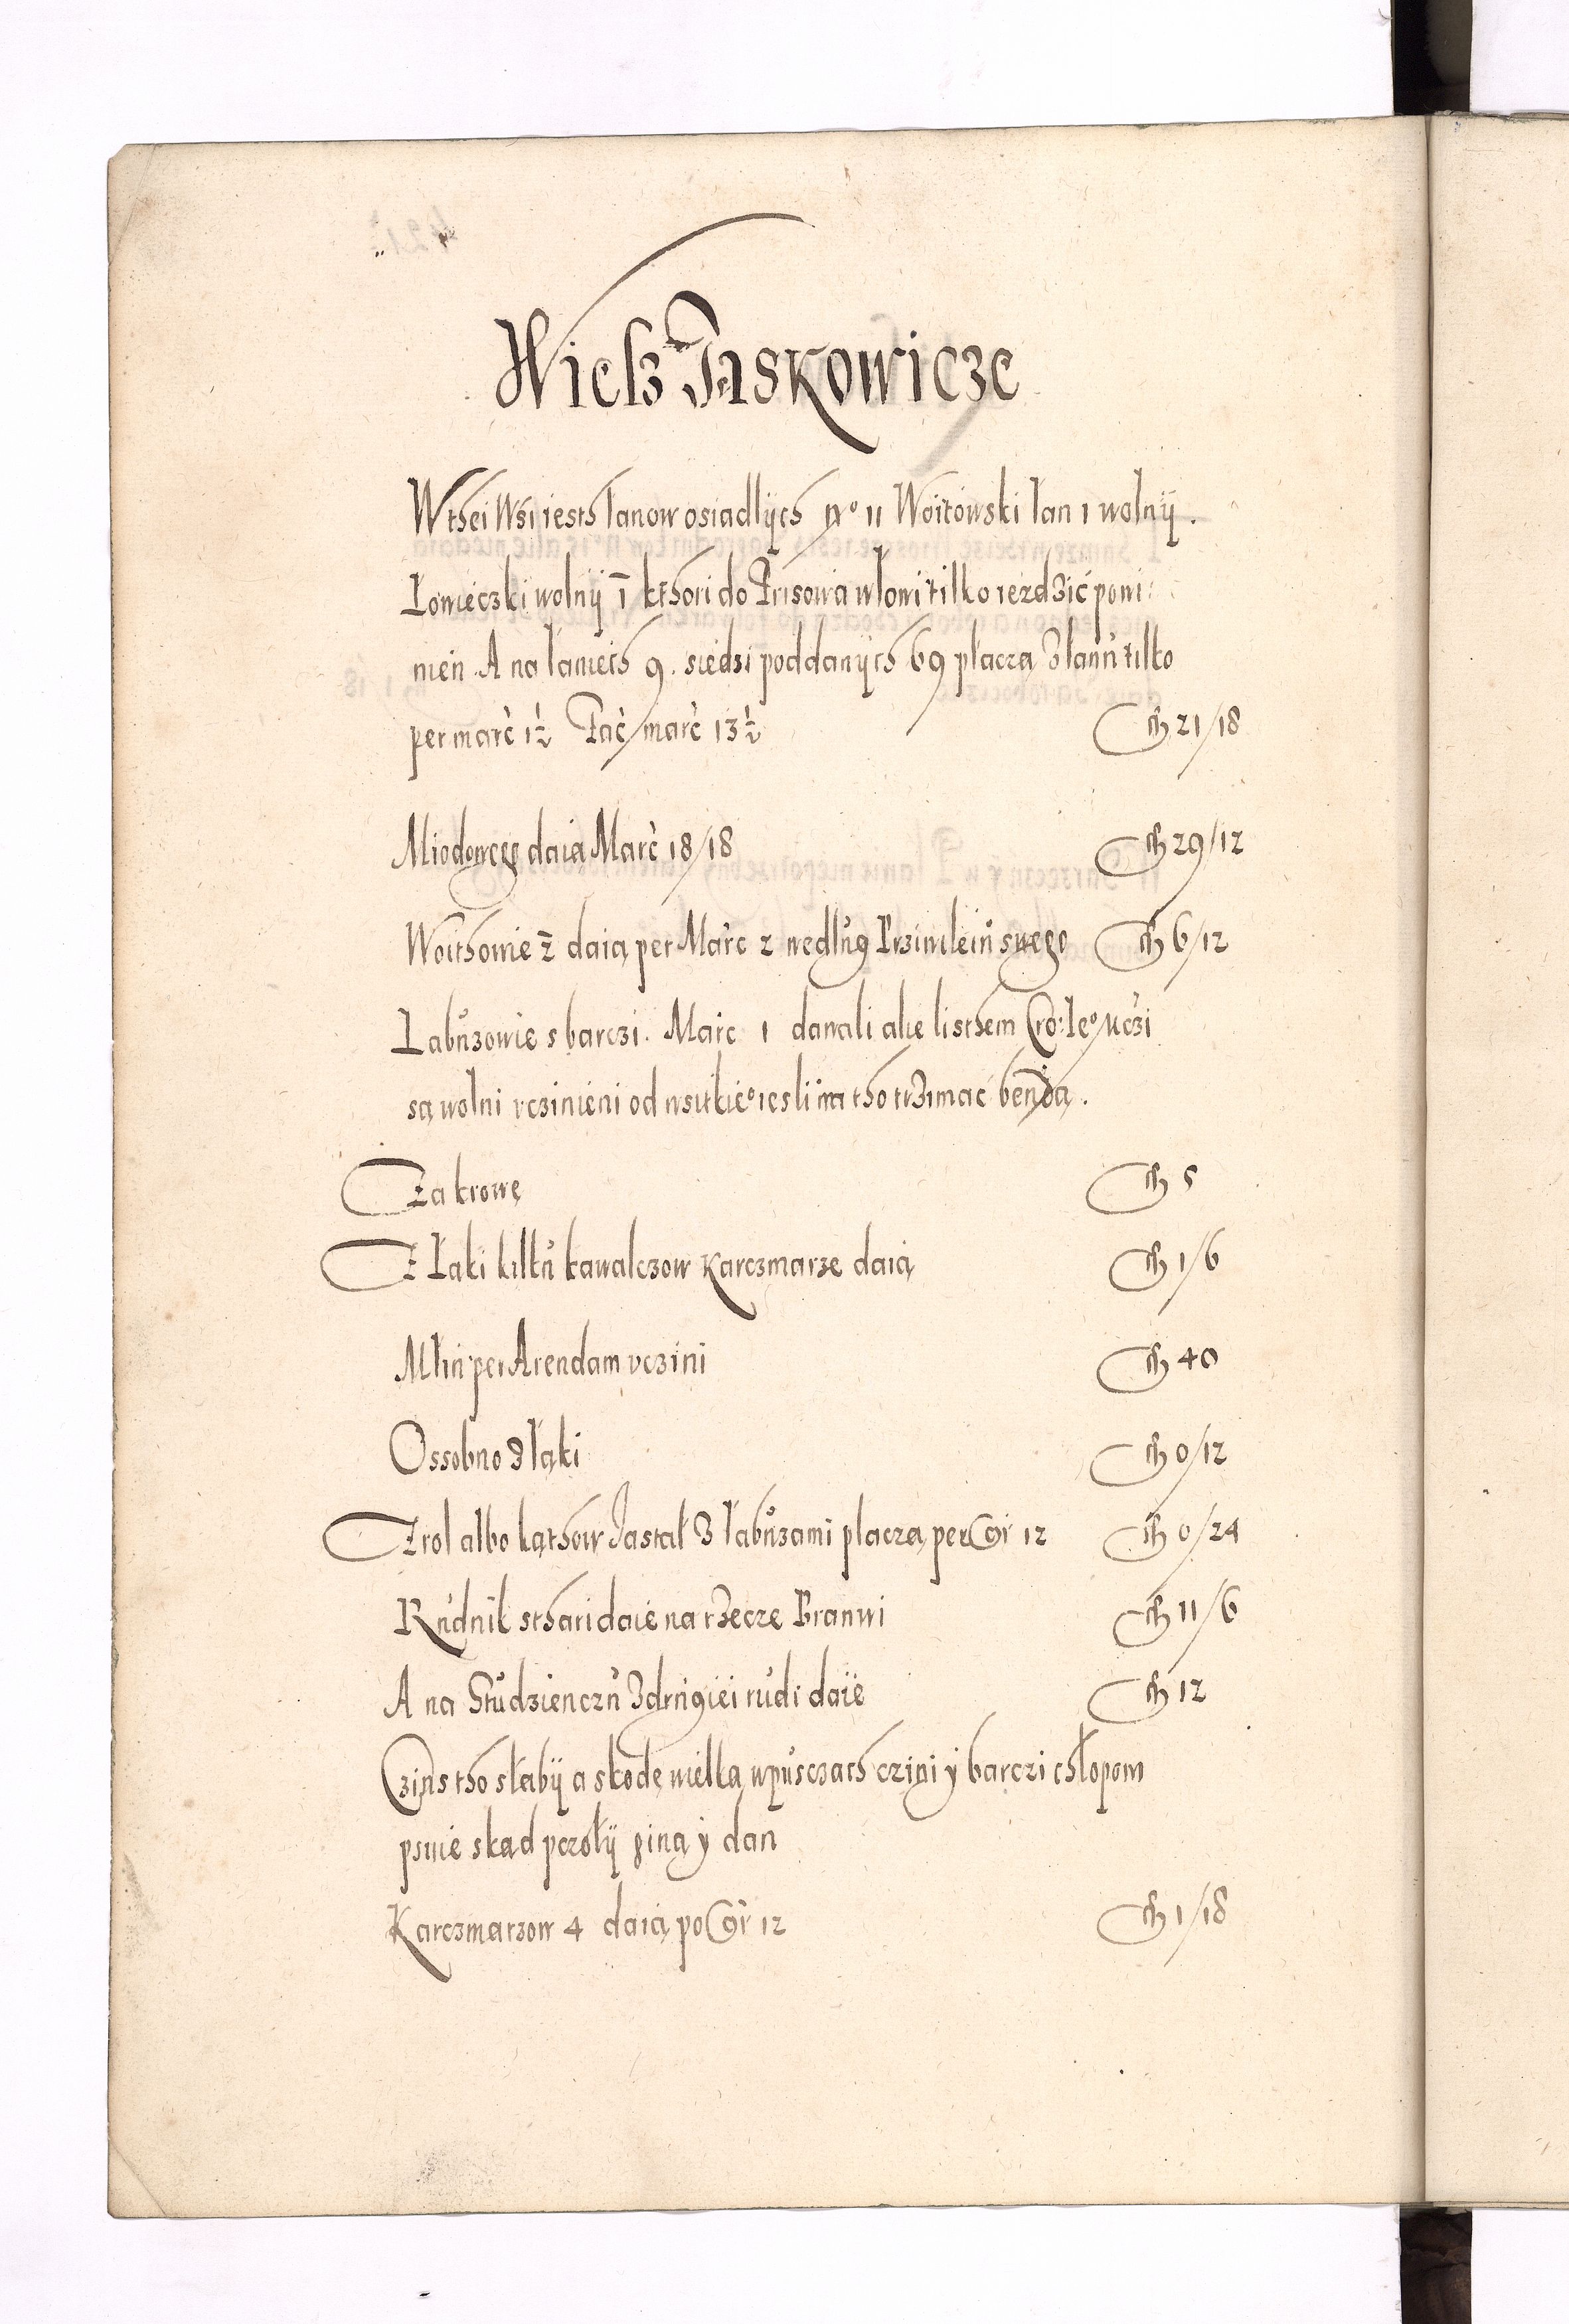 Wiesz Jaskowicze
W thei Wsi iesth łanow osiadlÿch No 11 Woitowski łan 1 wolnÿ.
Łowieczki wolnÿ 1 kthori do Prisowa w łowi tilko iezdzić powi:
nien. A na łaniech 9. siedzi poddanÿch 69 płaczą z łanu tilko
per marc 1½ Fac marc 13½ fl 21/18
Miodowego daią Marc 18/18 fl 29/12
Woithowie 2 daią per Marc 2 wedlug Prziwileiu swego fl 6/12
Łabuzowie s barczi. Marc 1 dawali alie listhem Cro: Ie° Mczi
są wolni vczinieni od wsitkie° iesli im tho trzimac bendą.
Za krowę fl 5
Z Łąki kilku kawalczow Karczmarze daią fl 1/6
Młin per Arendam vczini fl 40
Ossobno z łąki fl 0/12
Z rol albo kąthow Jastał z łabuzami płaczą per Gr 12 fl 0/24
Rudnik sthari daie na rzecze Branwi fl 11/6
A na Studzienczu z drugiei rudi daie fl 12
Czins tho słabÿ a skodę wielką w pusczach czini ÿ barczi chłopom
psuie skąd pczołÿ giną ÿ dan
Karczmarzow 4 daią po Gr 12 fl 1/18